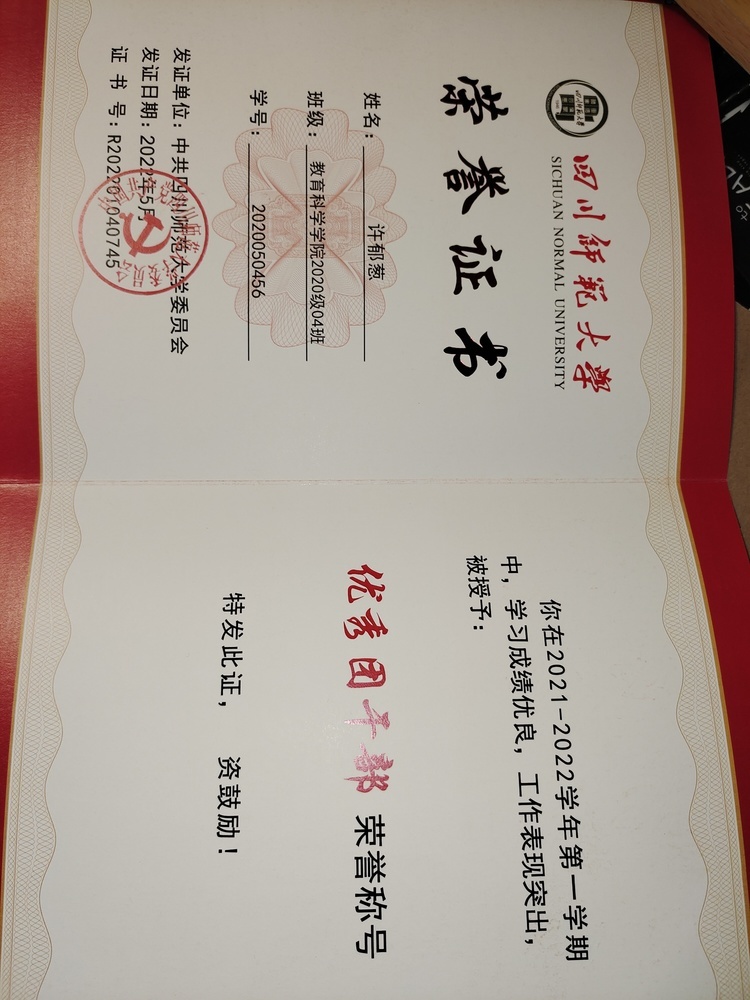 四川师范大学
SICHUAN NORMAL UNIVERSITY
荣誉证书
姓名：许郁葱
班级：教育科学学院2020级04班
学号：2020050456
发证单位：中共四川师范大学委员会
发证日期：2022年5月
证 书 号：R202201040745
你在2021-2022学年第一学期
中，学习成绩优良，工作表现突出，
被授予：
优秀团干部 荣誉称号
特发此证， 资鼓励！